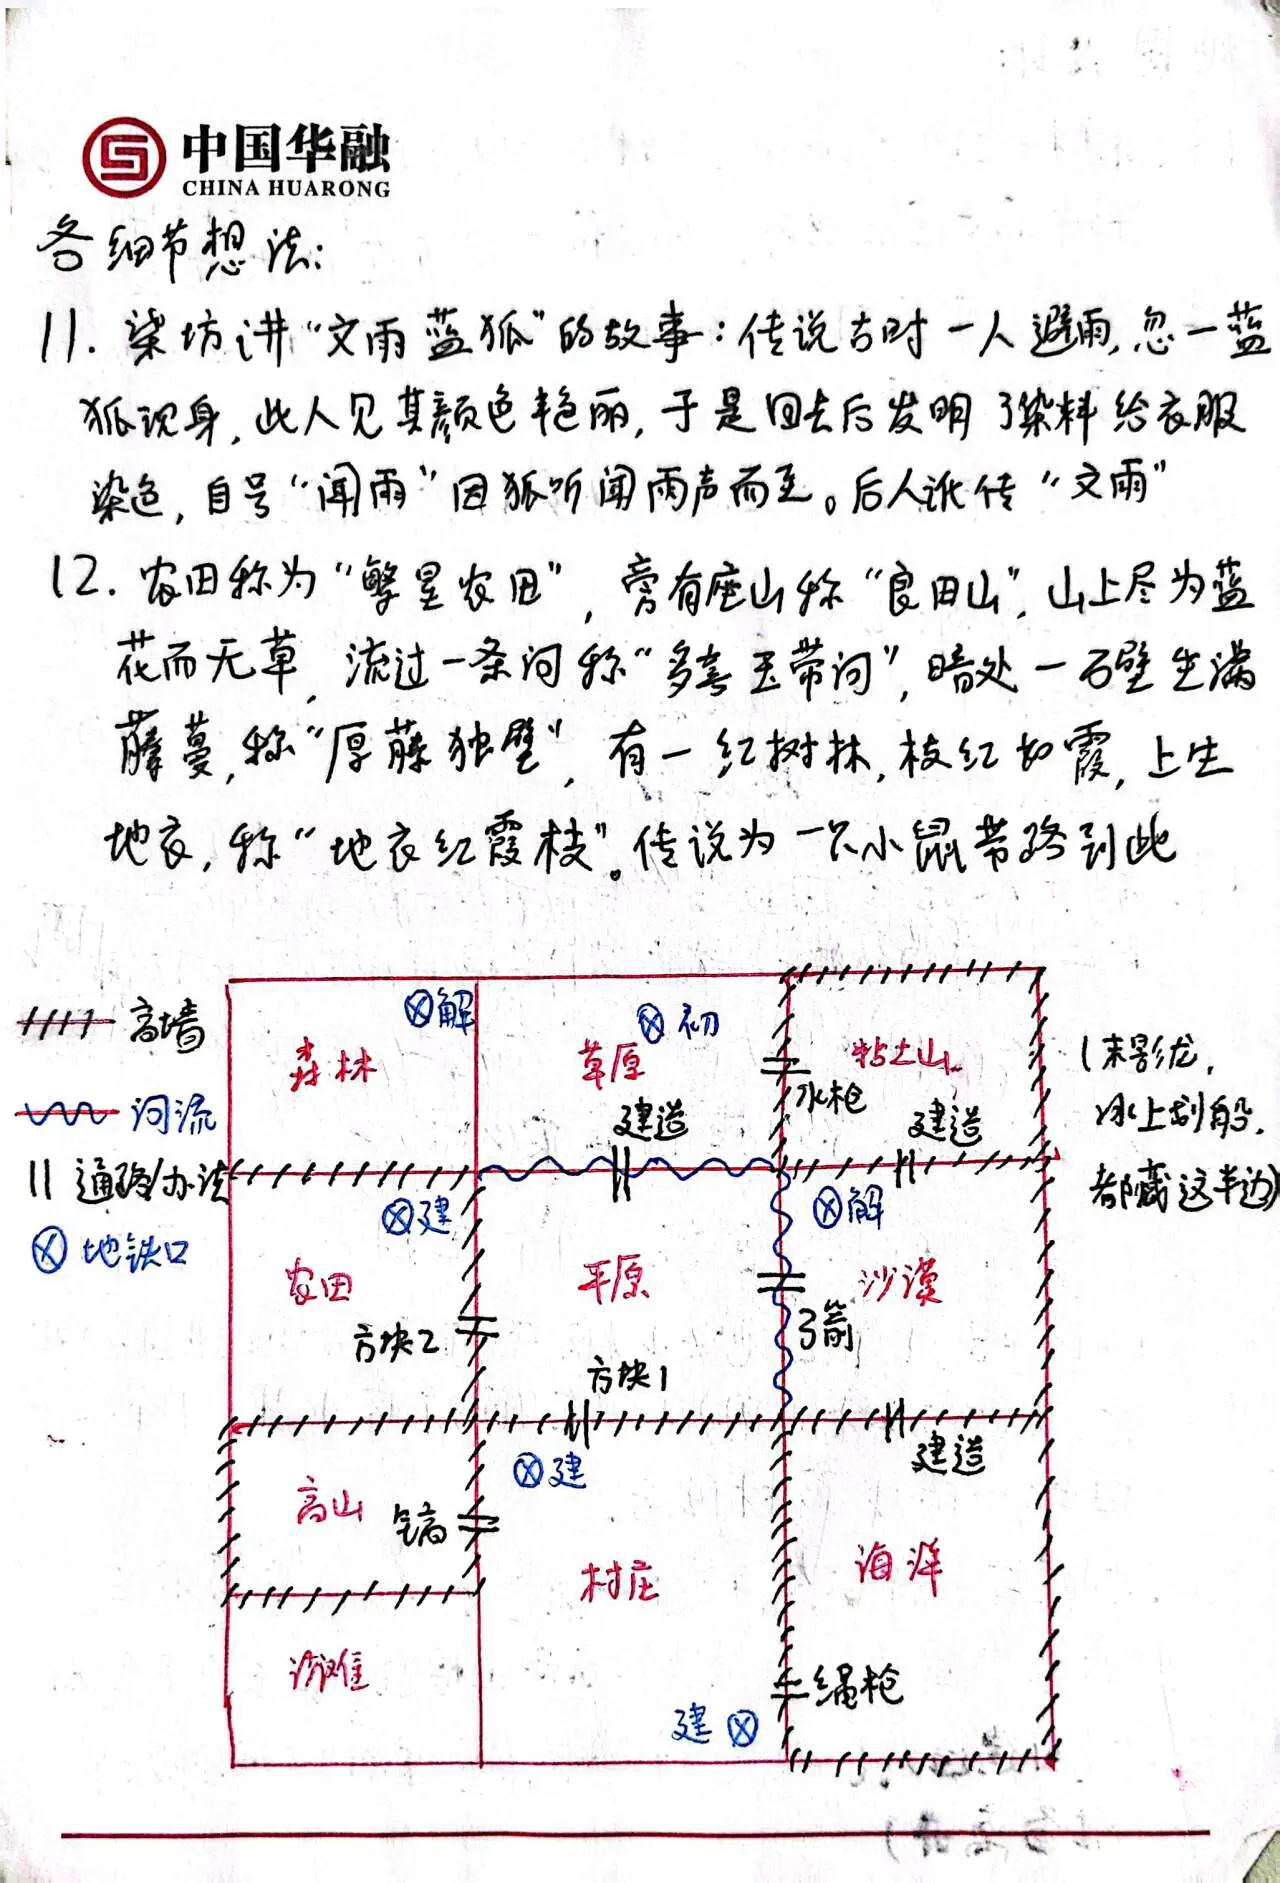 中国华融
CHINA HUARONG
各细节想法:
11. 染坊讲“文雨蓝狐”的故事:传说古时一人避雨,忽一蓝
狐现身,此人见其颜色艳丽,于是回去后发明了染料给衣服
染色,自号“闻雨”因狐听闻雨声而至。后人讹传“文雨”
12. 农田称为“繁星农田”,旁有座山称“良田山”,山上尽为蓝
花而无草,流过一条河称“多喜玉带河”,暗处一石壁生满
藤蔓,称“厚藤独壁”,有一红树林,枝红如霞,上生
地衣,称“地衣红霞枝”。传说为一只小鼠带路到此
高墙
河流
通路/办法
地铁口
森林
解
草原
初
建造
粘土山
水枪
建造
(末影龙,
冰上划船,
都藏这半边)
农田
建
方块2
平原
方块1
解
沙漠
弓箭
建造
高山
镐
建
村庄
海洋
沙滩
绳枪
建